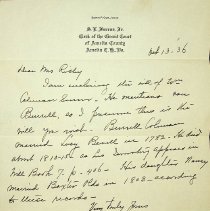 S. L. Farrar, Jr.
Clerk of the Circuit Court
of Amelia County
Amelia C. H., Va.
Feb 13 - 36
Dear Mrs
I am enclosing the will of Wm
Coleman He mentions son
Burrell, as I presume this is the
will you wish. Burrell Coleman
married in 1782. He died
about 1810-15 as his Inventory appears in
Will Book 7. p. 406 - His daughter Nancy
married Baxter in 1808 - according
to these records -
Very truly yours